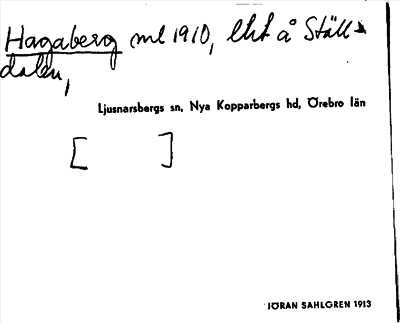 Hagaberg ml 1910, lht å Ställ-
dalen,
Ljusnarsbergs sn, Nya Kopparbergs hd, Örebro län
[ ]
JÖRAN SAHLGREN 1913